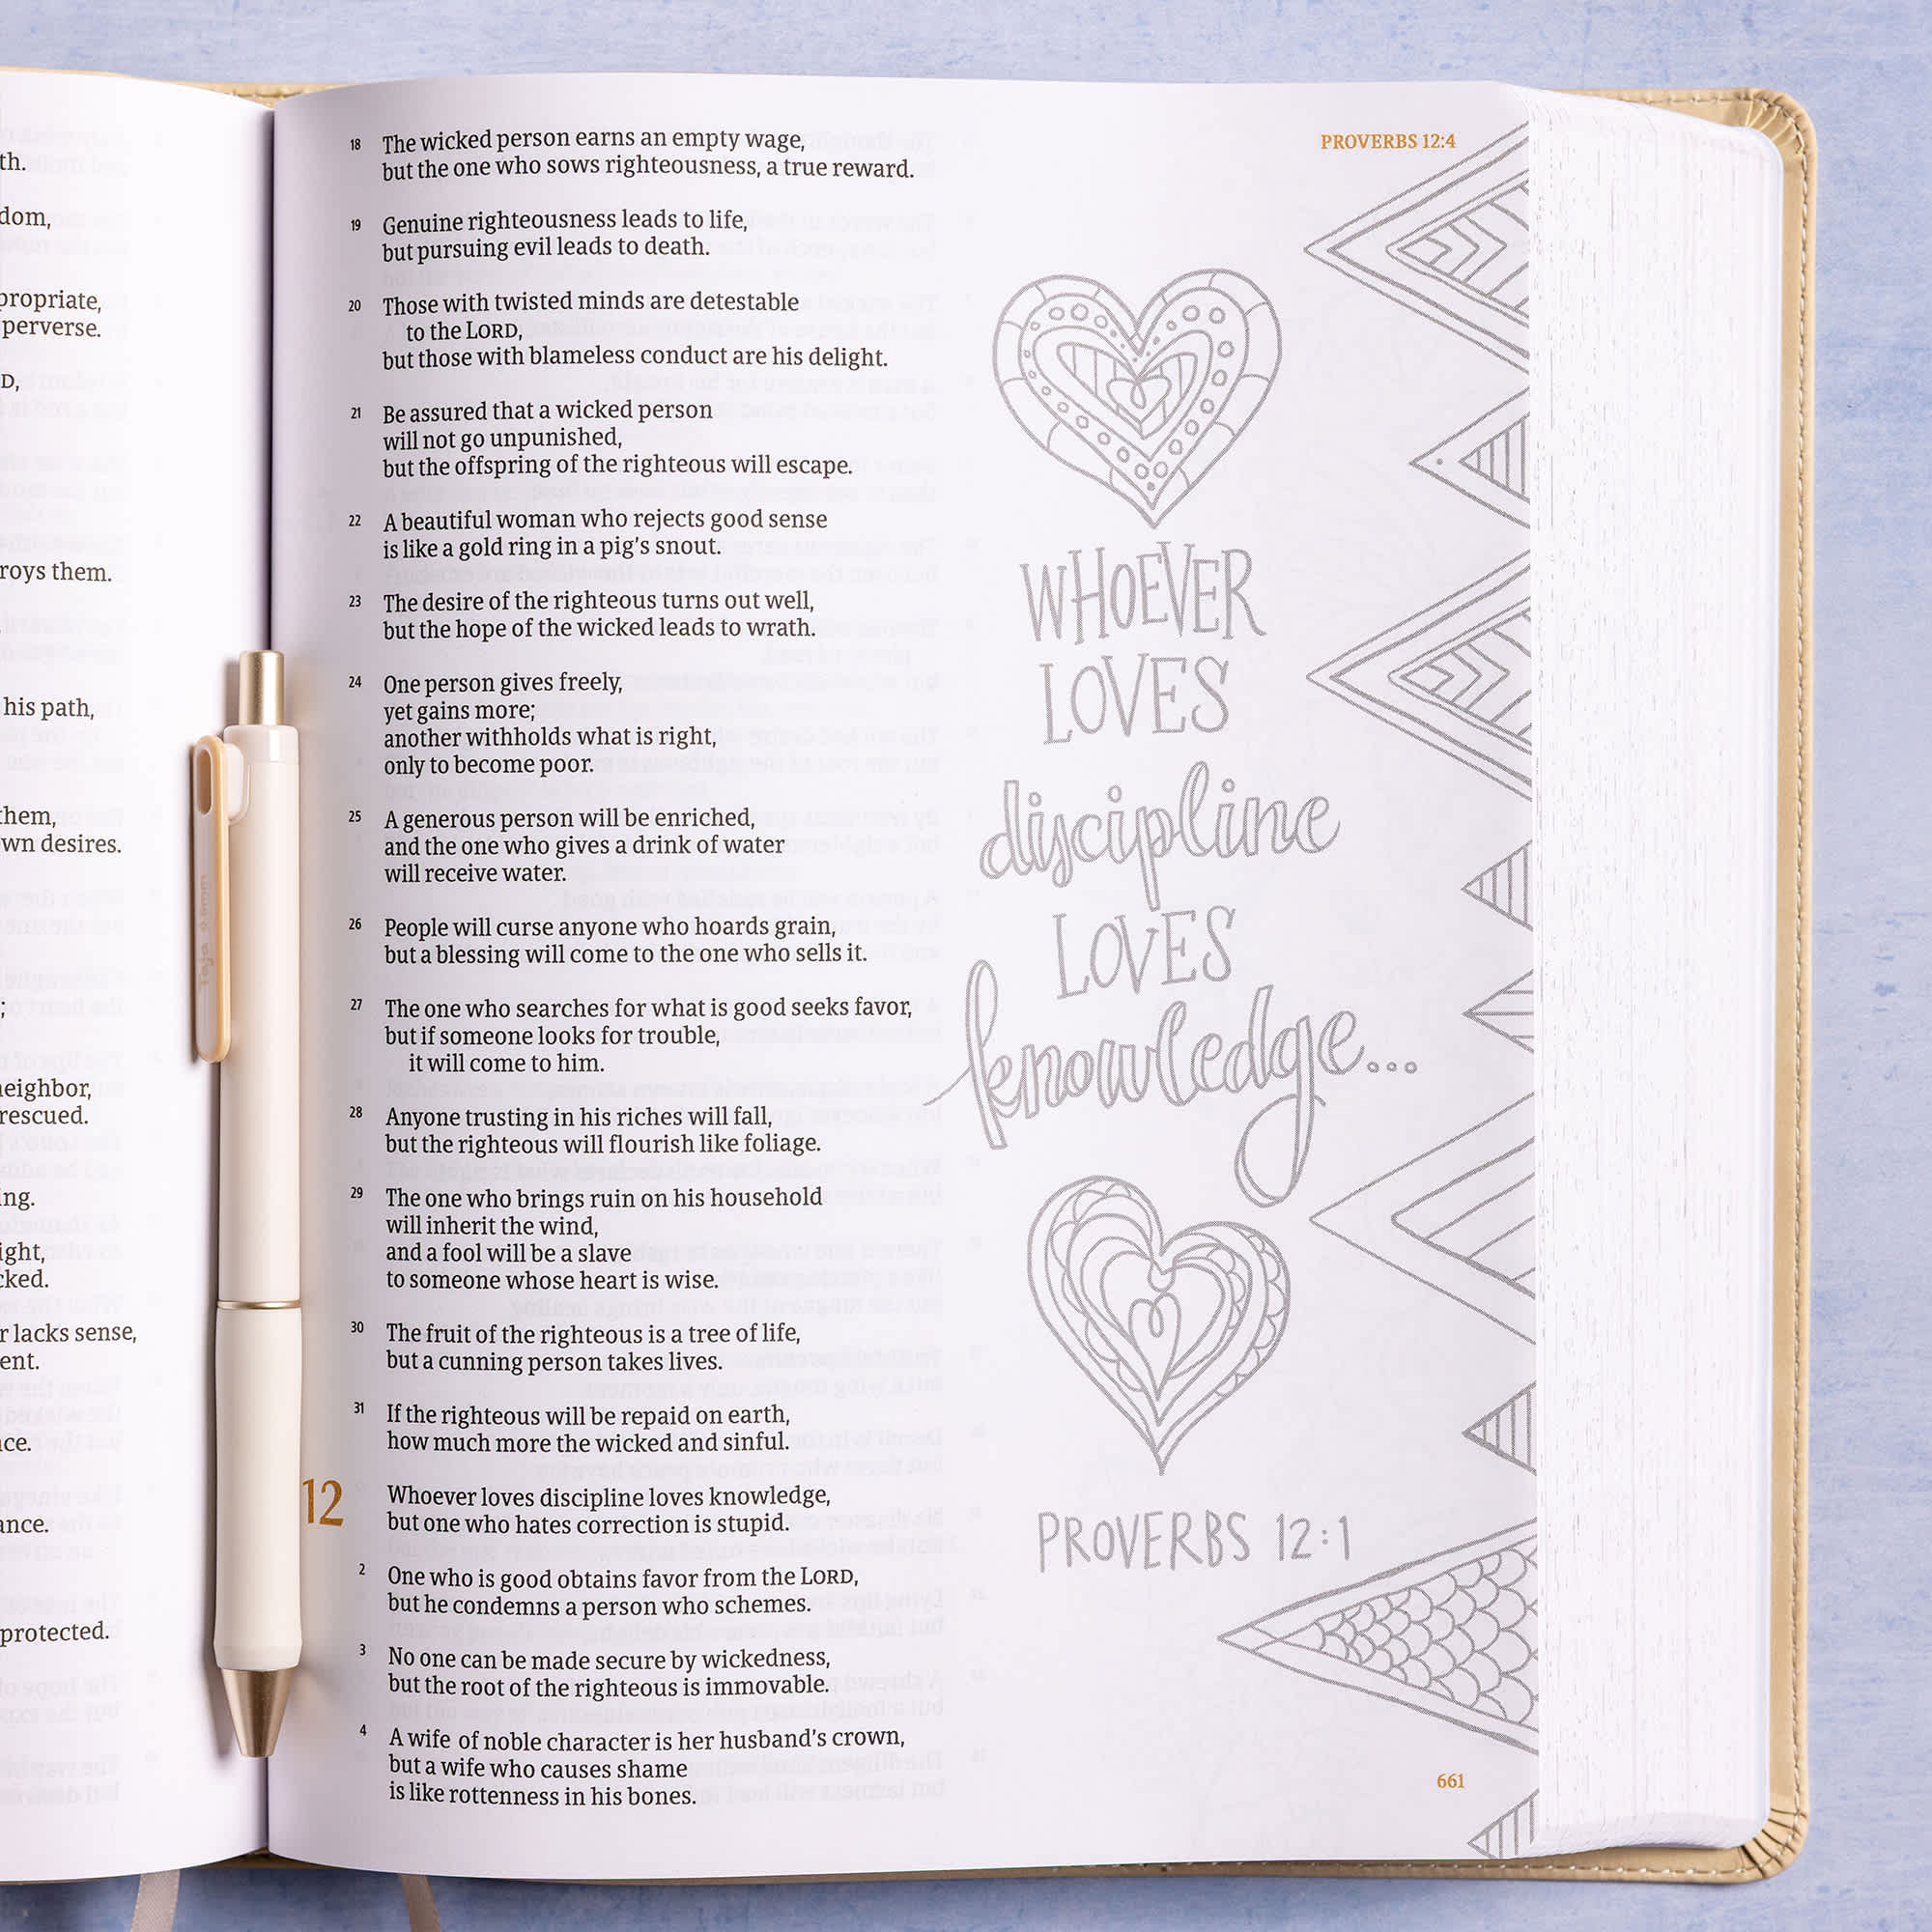 th.
dom,
propriate,
perverse.
D,
roys them.
his path,
them,
wn desires.
;
neighbor,
rescued.
ing.
ight,
cked.
r lacks sense,
ent.
ce.
ance.
protected.
Toja 0.5mm
18 The wicked person earns an empty wage,
but the one who sows righteousness, a true reward.
19 Genuine righteousness leads to life,
but pursuing evil leads to death.
20 Those with twisted minds are detestable
to the LORD,
but those with blameless conduct are his delight.
21 Be assured that a wicked person
will not go unpunished,
but the offspring of the righteous will escape.
22 A beautiful woman who rejects good sense
is like a gold ring in a pig’s snout.
23 The desire of the righteous turns out well,
but the hope of the wicked leads to wrath.
24 One person gives freely,
yet gains more;
another withholds what is right,
only to become poor.
25 A generous person will be enriched,
and the one who gives a drink of water
will receive water.
26 People will curse anyone who hoards grain,
but a blessing will come to the one who sells it.
27 The one who searches for what is good seeks favor,
but if someone looks for trouble,
it will come to him.
28 Anyone trusting in his riches will fall,
but the righteous will flourish like foliage.
29 The one who brings ruin on his household
will inherit the wind,
and a fool will be a slave
to someone whose heart is wise.
30 The fruit of the righteous is a tree of life,
but a cunning person takes lives.
31 If the righteous will be repaid on earth,
how much more the wicked and sinful.
12 Whoever loves discipline loves knowledge,
but one who hates correction is stupid.
2 One who is good obtains favor from the LORD,
but he condemns a person who schemes.
3 No one can be made secure by wickedness,
but the root of the righteous is immovable.
4 A wife of noble character is her husband’s crown,
but a wife who causes shame
is like rottenness in his bones.
PROVERBS 12:4
WHOEVER
LOVES
discipline
LOVES
knowledge...
PROVERBS 12:1
661